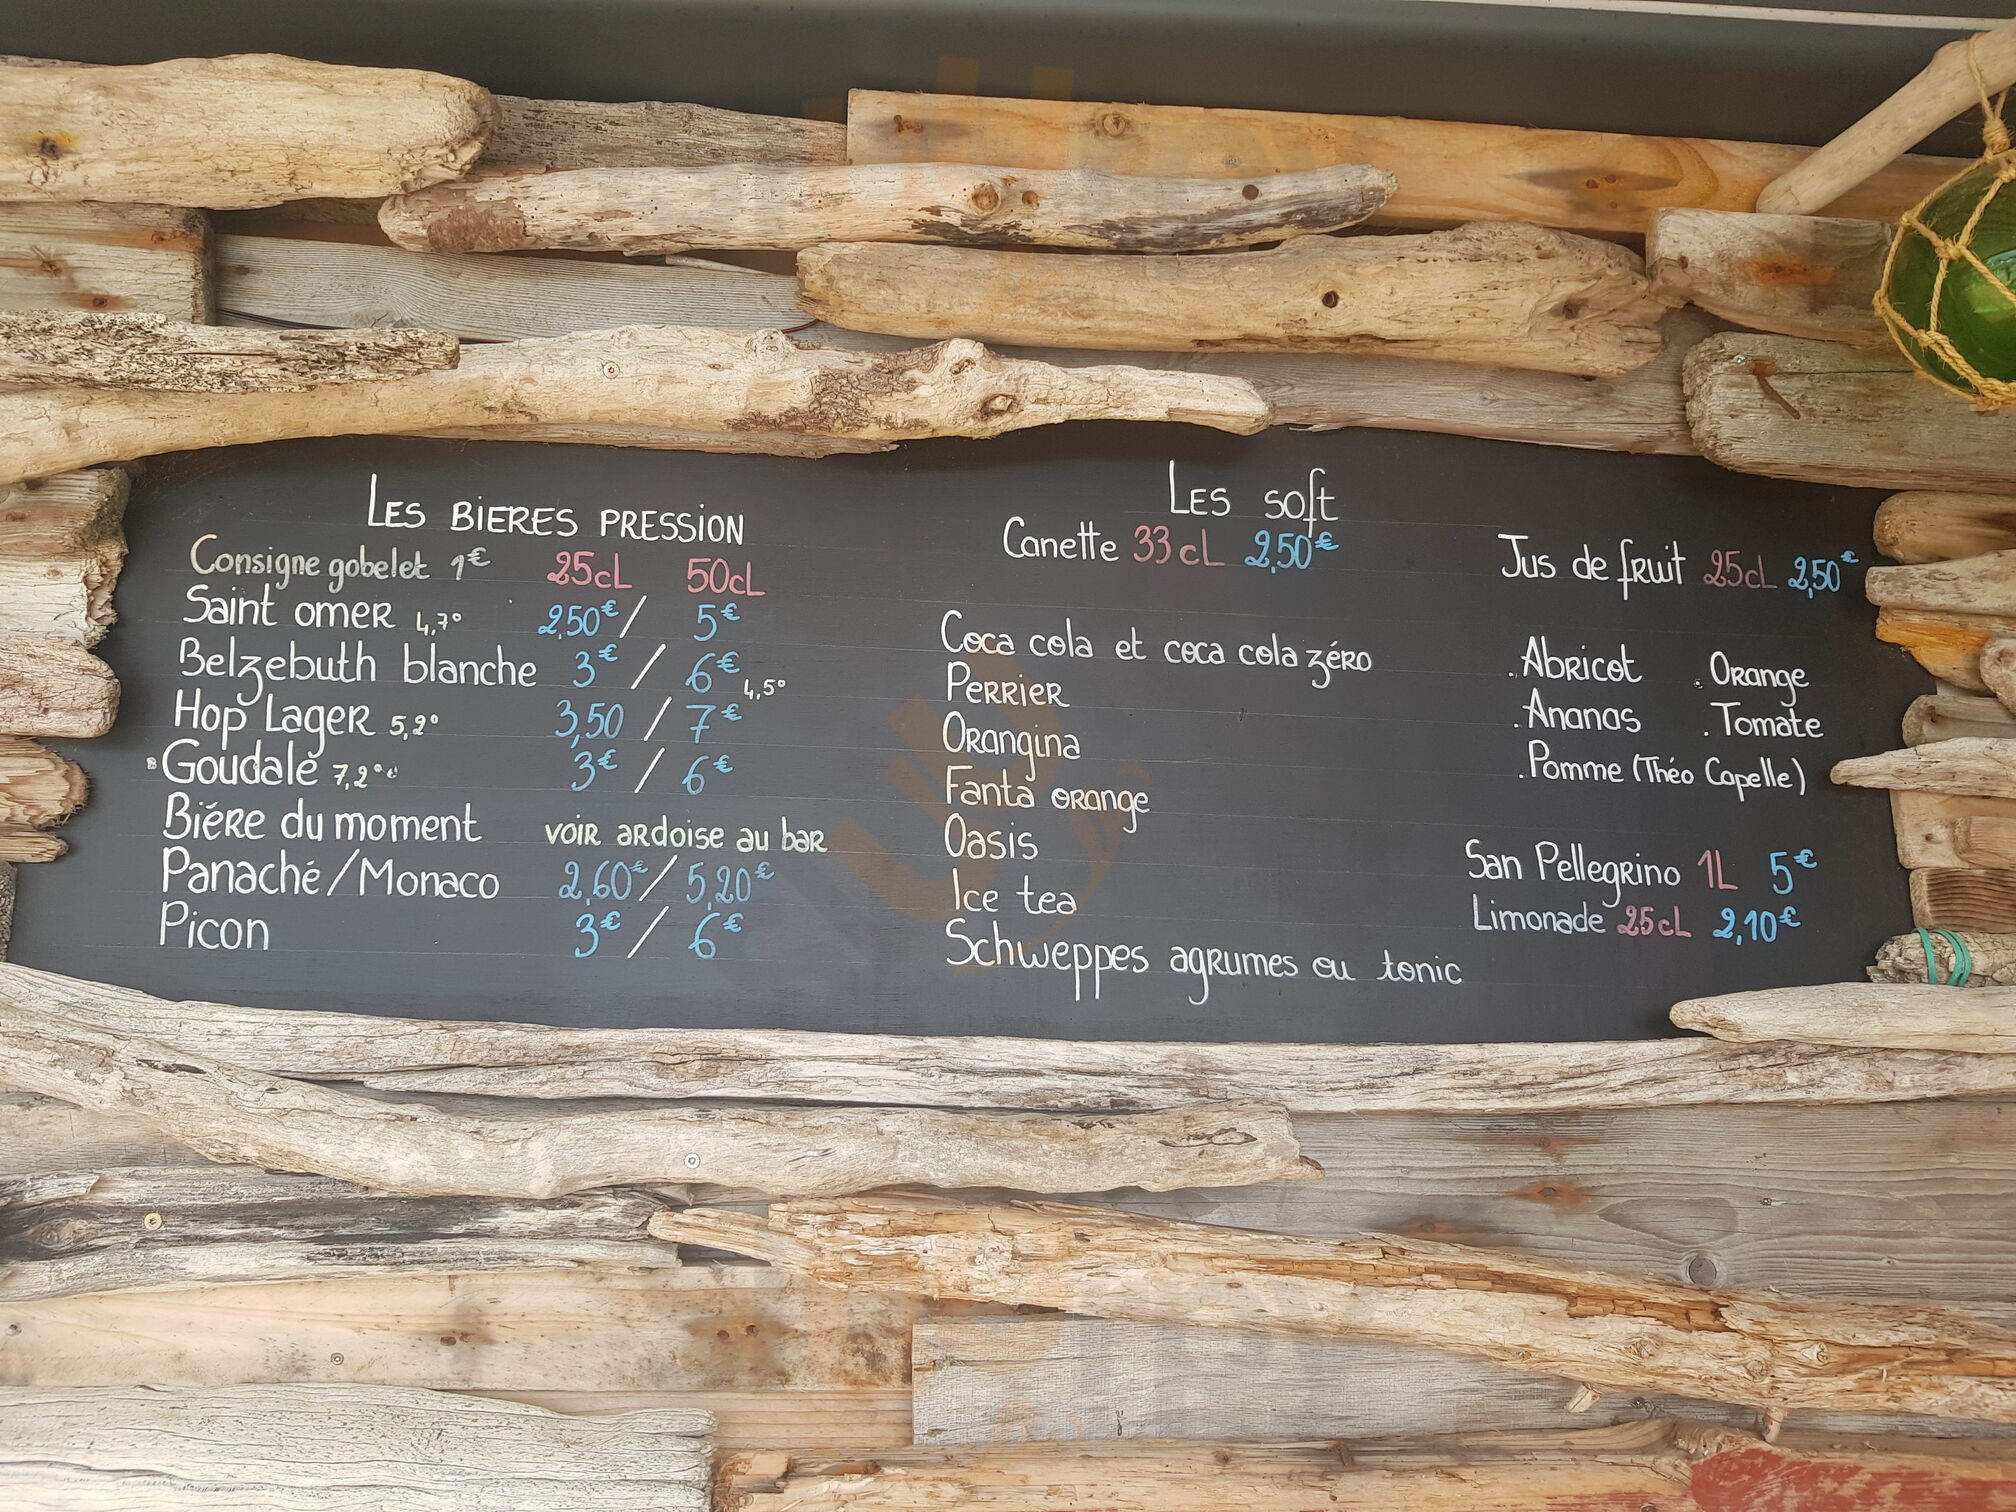 Les bieres pression
Consigne gobelet 1€ 25cL 50cL
Saint omer 4,7° 2,50€ / 5€
Belzebuth blanche 3€ / 6€ 4,5°
Hop Lager 5,2° 3,50 / 7€
Goudale 7,2° 3€ / 6€
Biére du moment voir ardoise au bar
Panaché/Monaco 2,60€ / 5,20€
Picon 3€ / 6€
Les soft
Canette 33cL 2,50€
Coca cola et coca cola zéro
Perrier
Orangina
Fanta orange
Oasis
Ice tea
Schweppes agrumes ou tonic
Jus de fruit 25cL 2,50€
. Abricot . Orange
. Ananas . Tomate
. Pomme (Théo Capelle)
San Pellegrino 1L 5€
Limonade 25cL 2,10€